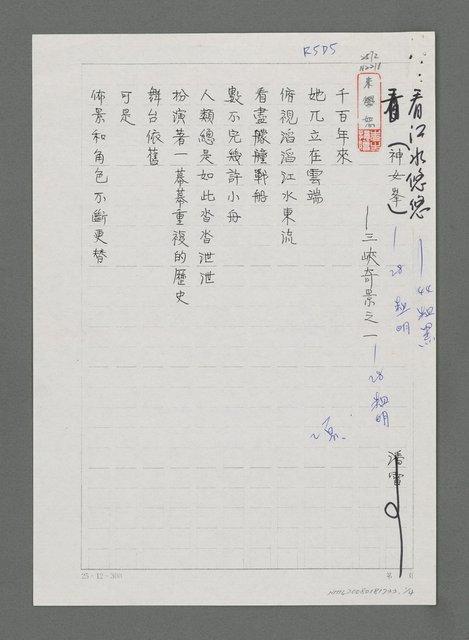 R5D5
看江水悠悠
看(神女峯)
44 粗黑
28 粗明
—三峽奇景之一
28 粗明
潘雷
千百年來
她兀立在雲端
俯視滔滔江水東流
看盡艨艟戰船
數不完幾許小舟
人類總是如此沓沓泄泄
扮演著一幕幕重複的歷史
舞台依舊
可是
佈景和角色不斷更替
25-12-300
第 頁